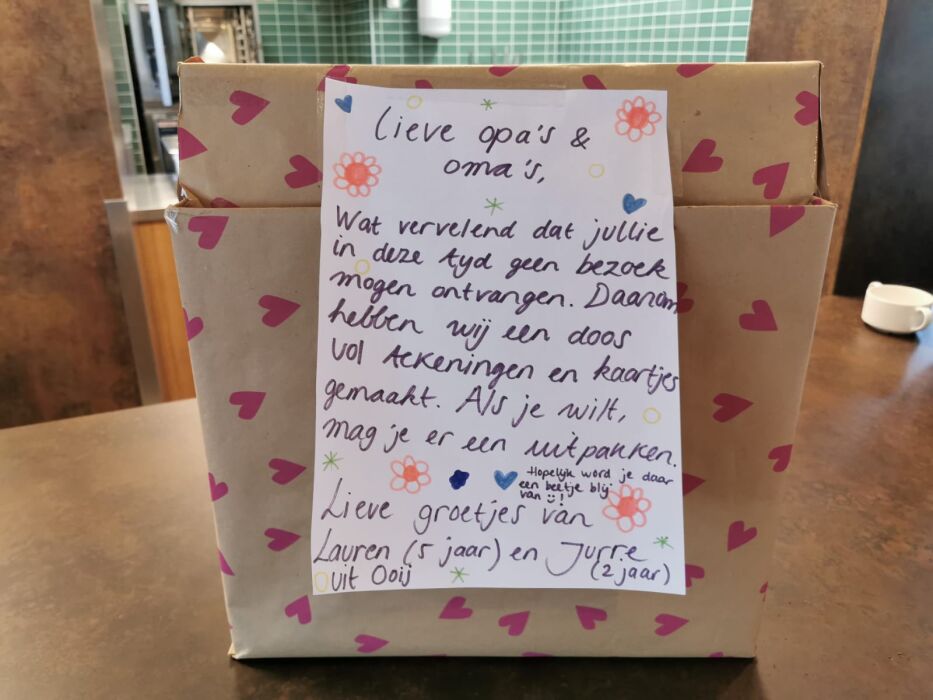 Lieve opa's &
oma's,
Wat vervelend dat jullie
in deze tyd geen bezoek
mogen ontvangen. Daarom
hebben wij een doos
vol tekeningen en kaartjes
gemaakt. Als je wilt,
mag je er een uitpakken.
Hopelijk word je daar
een beetje blij
van !
Lieve groetjes van
Lauren (5 jaar) en Jurre
(2 jaar)
uit Ooij